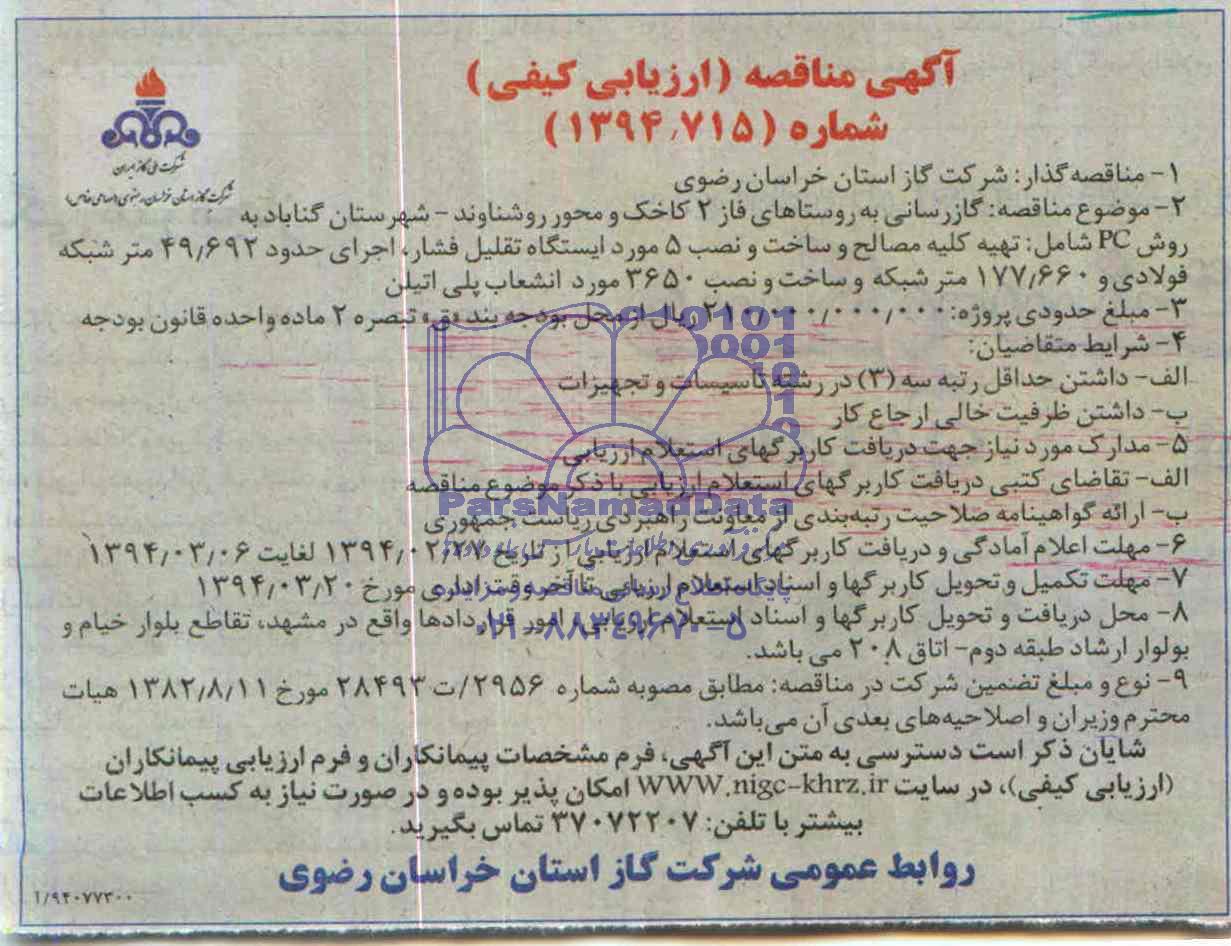 آگهی مناقصه (ارزیابی کیفی)
شماره (۱۳۹۴٫۷۱۵)
شرکت ملی گاز ایران
شرکت گاز استان خراسان رضوی (سهامی خاص)
۱- مناقصه گذار: شرکت گاز استان خراسان رضوی
۲- موضوع مناقصه: گازرسانی به روستاهای فاز ۲ کاخک و محور روشناوند - شهرستان گناباد به
روش PC شامل: تهیه کلیه مصالح و ساخت و نصب ۵ مورد ایستگاه تقلیل فشار، اجرای حدود ۴۹٫۶۹۲ متر شبکه
فولادی و ۱۷۷٫۶۶۰ متر شبکه و ساخت و نصب ۳۶۵۰ مورد انشعاب پلی اتیلن
۳- مبلغ حدودی پروژه: ۲۱۰٫۰۰۰٫۰۰۰٫۰۰۰ ریال از محل بودجه بند «ق» تبصره ۲ ماده واحده قانون بودجه
۴- شرایط متقاضیان:
الف- داشتن حداقل رتبه سه (۳) در رشته تاسیسات و تجهیزات
ب- داشتن ظرفیت خالی ارجاع کار
۵- مدارک مورد نیاز جهت دریافت کاربرگهای استعلام ارزیابی
الف- تقاضای کتبی دریافت کاربرگهای استعلام ارزیابی با ذکر موضوع مناقصه
ParsNamadData
ب- ارائه گواهینامه صلاحیت رتبه‌بندی از معاونت راهبردی ریاست جمهوری
۶- مهلت اعلام آمادگی و دریافت کاربرگهای استعلام ارزیابی از تاریخ ۱۳۹۴٫۰۲٫۲۷ لغایت ۱۳۹۴٫۰۳٫۰۶
۷- مهلت تکمیل و تحویل کاربرگها و اسناد استعلام ارزیابی تا آخر وقت اداری مورخ ۱۳۹۴٫۰۳٫۲۰
۸- محل دریافت و تحویل کاربرگها و اسناد استعلام ارزیابی، امور قراردادها واقع در مشهد، تقاطع بلوار خیام و
۰۲۱-۸۸۳۴۹۶۷۰-۵
بولوار ارشاد طبقه دوم- اتاق ۲۰۸ می باشد.
۹- نوع و مبلغ تضمین شرکت در مناقصه: مطابق مصوبه شماره ۲۹۵۶/ت ۲۸۴۹۳ مورخ ۱۳۸۲٫۸٫۱۱ هیات
محترم وزیران و اصلاحیه‌های بعدی آن می‌باشد.
شایان ذکر است دسترسی به متن این آگهی، فرم مشخصات پیمانکاران و فرم ارزیابی پیمانکاران
(ارزیابی کیفی)، در سایت WWW.nigc-khrz.ir امکان پذیر بوده و در صورت نیاز به کسب اطلاعات
بیشتر با تلفن: ۳۷۰۷۲۲۰۷ تماس بگیرید.
روابط عمومی شرکت گاز استان خراسان رضوی
۹۴۰۷۷۳۰۰/آ